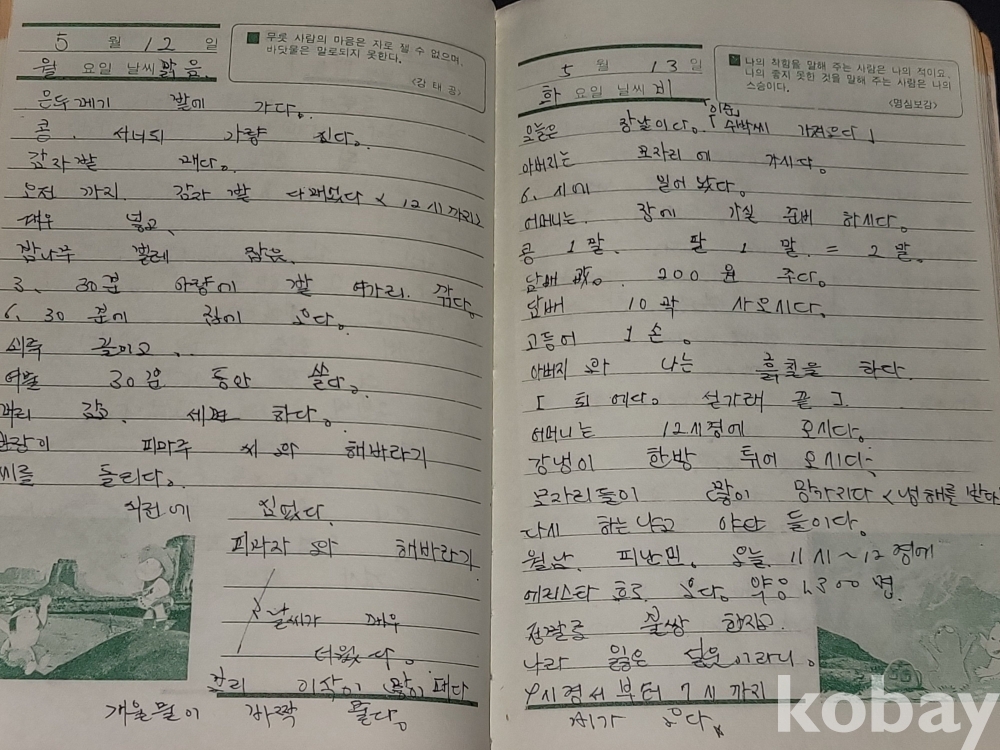 5 월 12 일
월 요일 날씨 맑음
무릇 사람의 마음은 자로 잴 수 없으며,
바닷물은 말로되지 못한다.
<강 태 공>
밭에 가다.
콩. 서너되 가량
감자밭 매다.
오전 까지. 감자 밭 다매었다 <12시까지>
매우 덥고,
밤나무 벌레 많음.
3. 30분 밭
6. 30 분에 집에 오다.
쇠죽 끓이고..
30분 동안 쓸다.
머리 감고. 세면 하다.
피마주 씨 와 해바라기
씨를 들리다.
심었다.
피마자 와 해바라기
날씨가 매우
더웠다.
이삭이 많이 패다
개울물이 바짝 줄다.
5 월 13 일
화 요일 날씨 비
나의 착함을 말해 주는 사람은 나의 적이요,
나의 좋지 못한 것을 말해 주는 사람은 나의
스승이다.
<명심보감>
오늘은 장날이다. 「수박씨 가져오다」
아버지는 모자리에 가시다.
6. 시에 일어 났다.
어머니는. 장에 가실 준비 하시다.
콩 1 말. 팥 1 말. = 2 말.
담배 값. 200 원 주다.
담배 10 곽 사오시다.
고등어 1 손.
아버지 와 나는 흙칠을 하다.
어머니는 12시경에 오시다.
강냉이 한방 튀어 오시다.
모자리들이 많이 망가지다 <냉해를 받다
다시 하느냐고 야단 들이다.
월남. 피난민. 오늘. 11시~12경에
오다. 약 1,300 명.
정말로 불쌍 한지고.
나라 잃은 설움이라니.
부터 7시 까지
비가 오다.
kobay